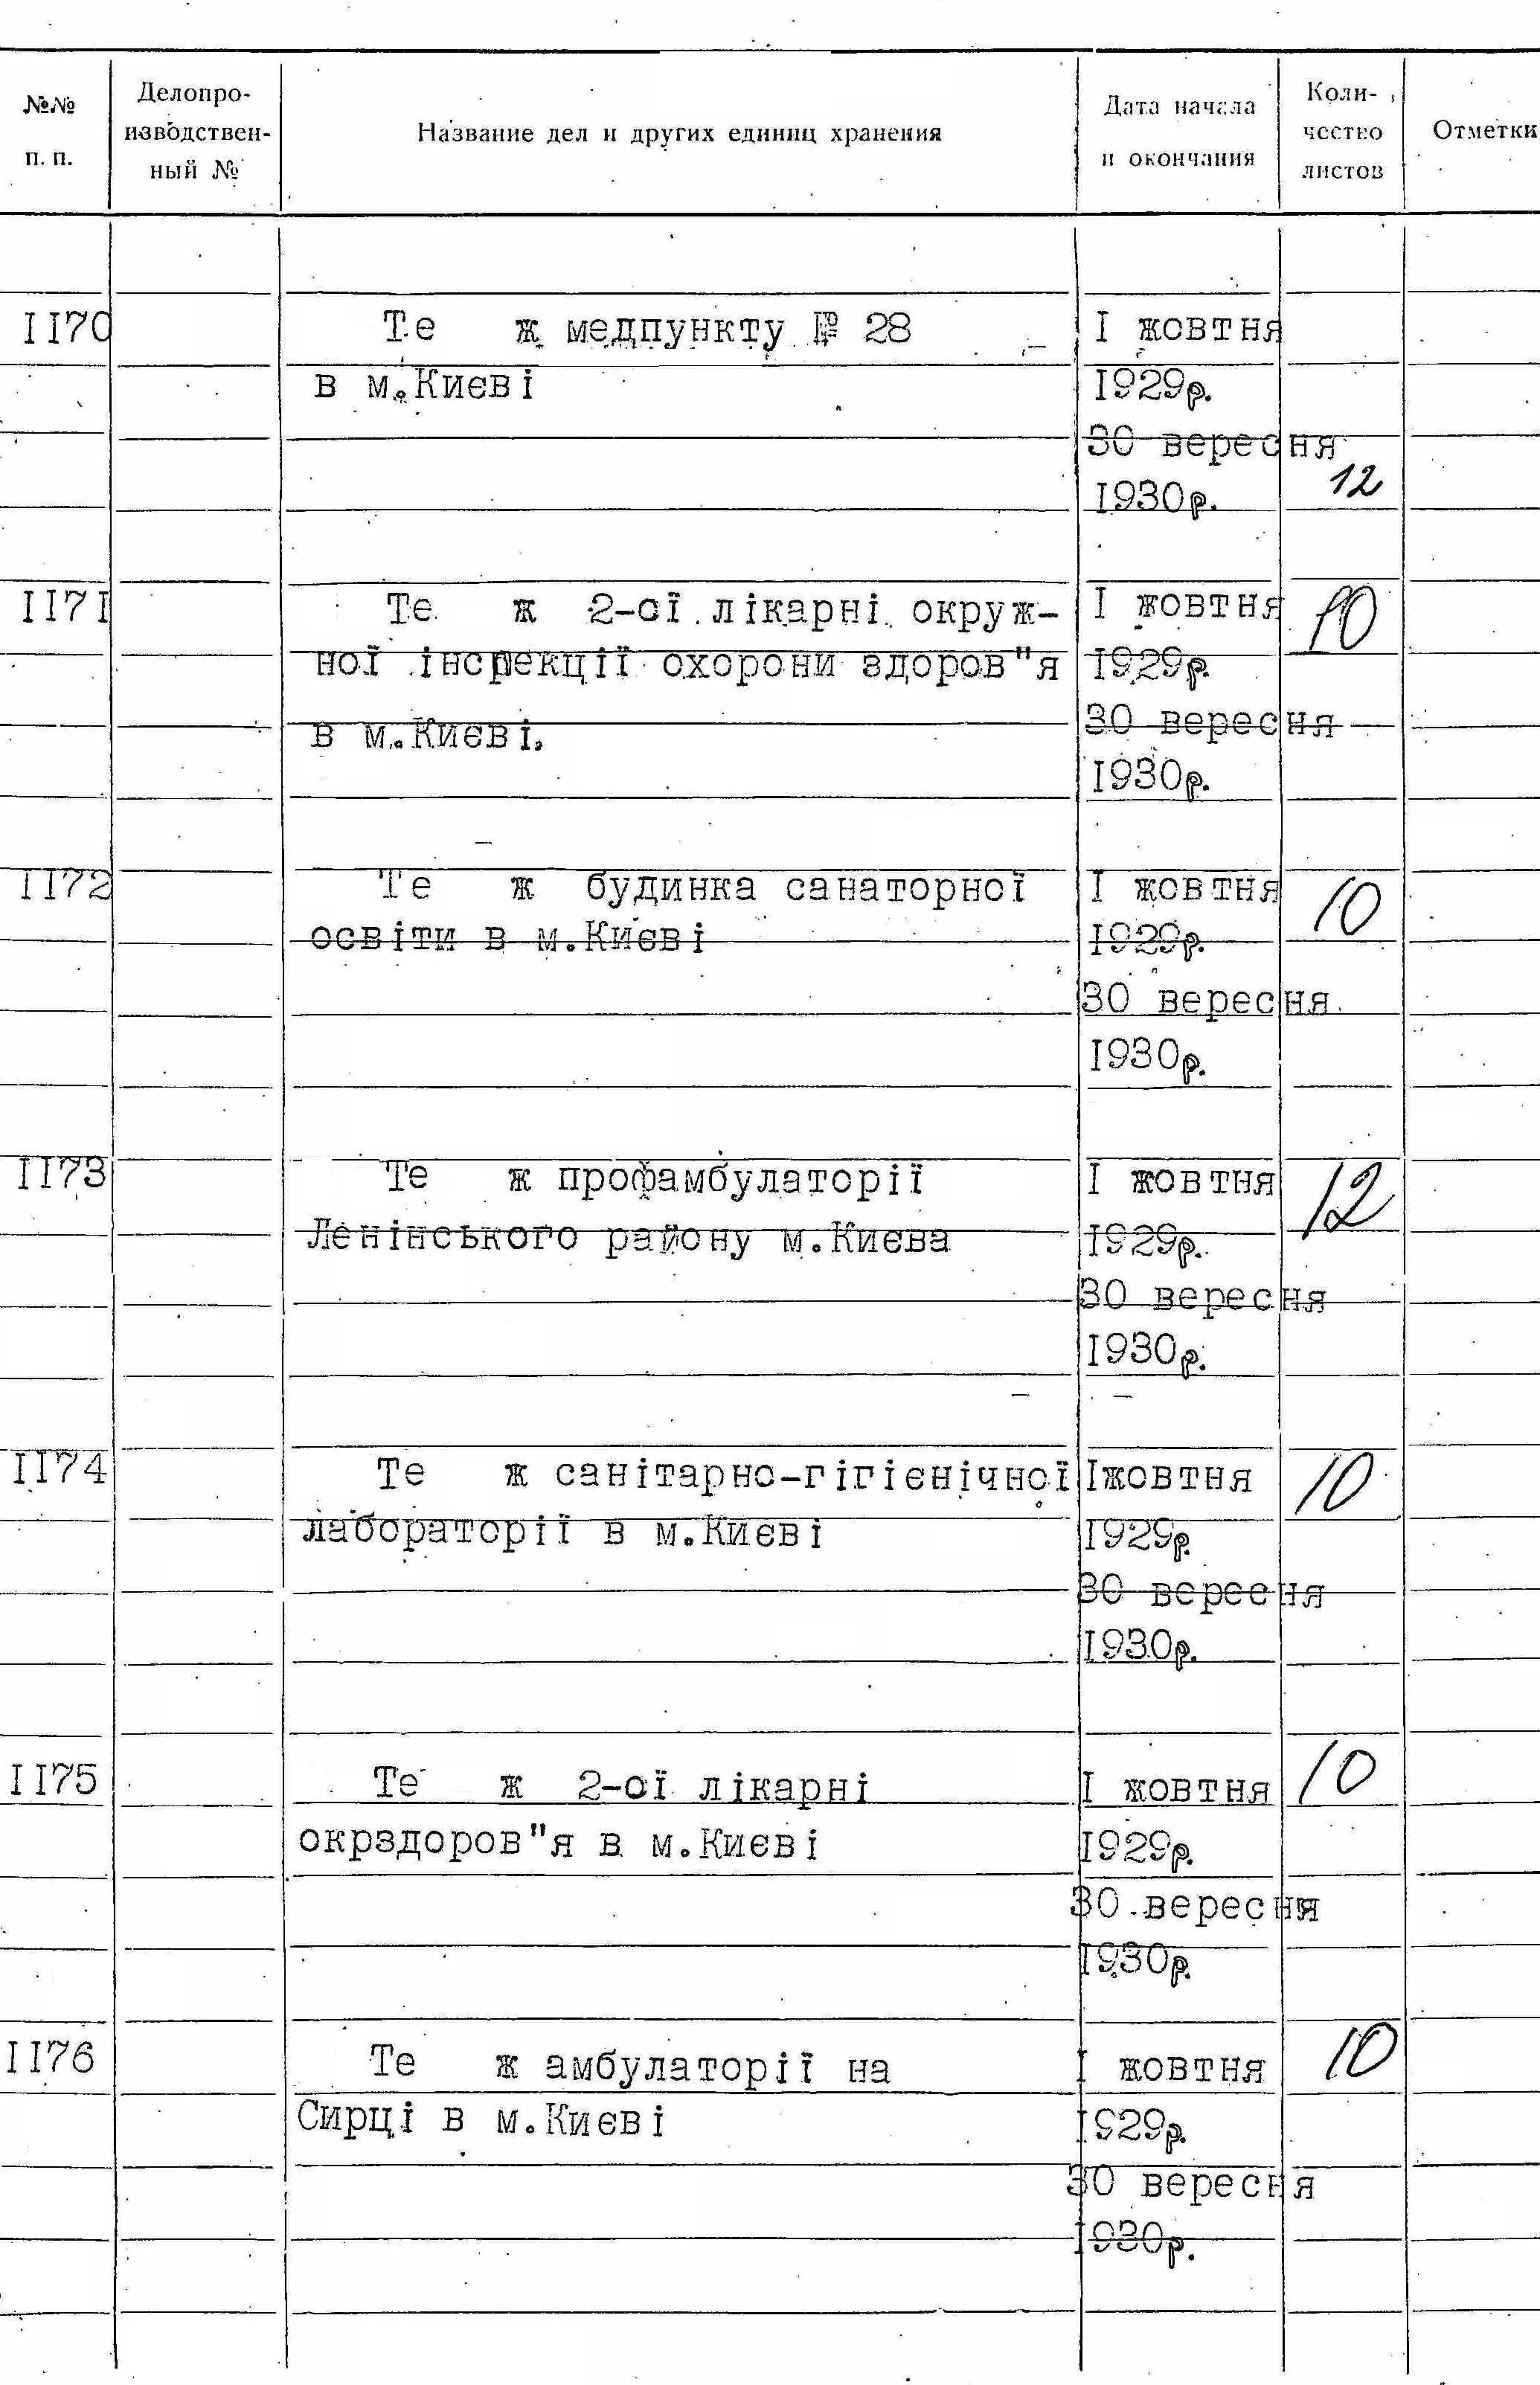 №№ п. п.
Делопро-
изводствен-
ный №
Название дел и других единиц хранения
Дата начала
и окончания
Коли-
чество
листов
Отметки
II70 Те ж медпункту № 28 I жовтня
в м.Києві 1929р.
30 вересня
1930р. 12
II71 Те ж 2-ої лікарні окруж- I жовтня 10
ної інспекції охорони здоров"я 1929р.
в м.Києві. 30 вересня
1930р.
II72 Те ж будинка санаторної I жовтня 10
освіти в м.Києві 1929р.
30 вересня
1930р.
II73 Те ж профамбулаторії I жовтня 12
Ленінського району м.Києва 1929р.
30 вересня
1930р.
II74 Те ж санітарно-гігієнічної Iжовтня 10
лабораторії в м.Києві 1929р.
30 вересня
1930р.
II75 Те ж 2-ої лікарні I жовтня 10
окрздоров"я в м.Києві 1929р.
30 вересня
1930р.
II76 Те ж амбулаторії на I жовтня 10
Сирці в м.Києві 1929р.
30 вересня
1930р.